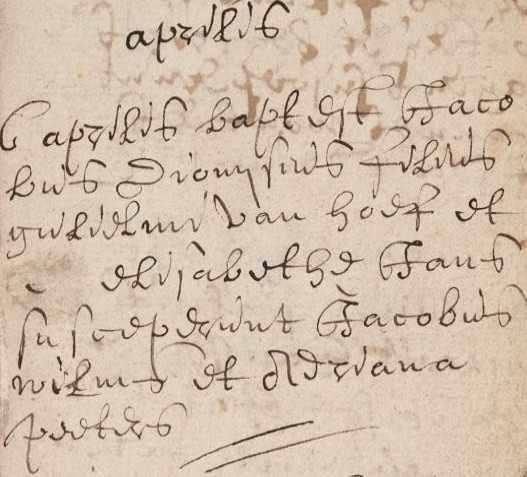 aprilis
6 aprilis bapt est Jaco
bus Dionysius filius
gulielmi van hoef et
elisabethe Jans
susceperunt Jacobus
wilms et Adriana
peeters